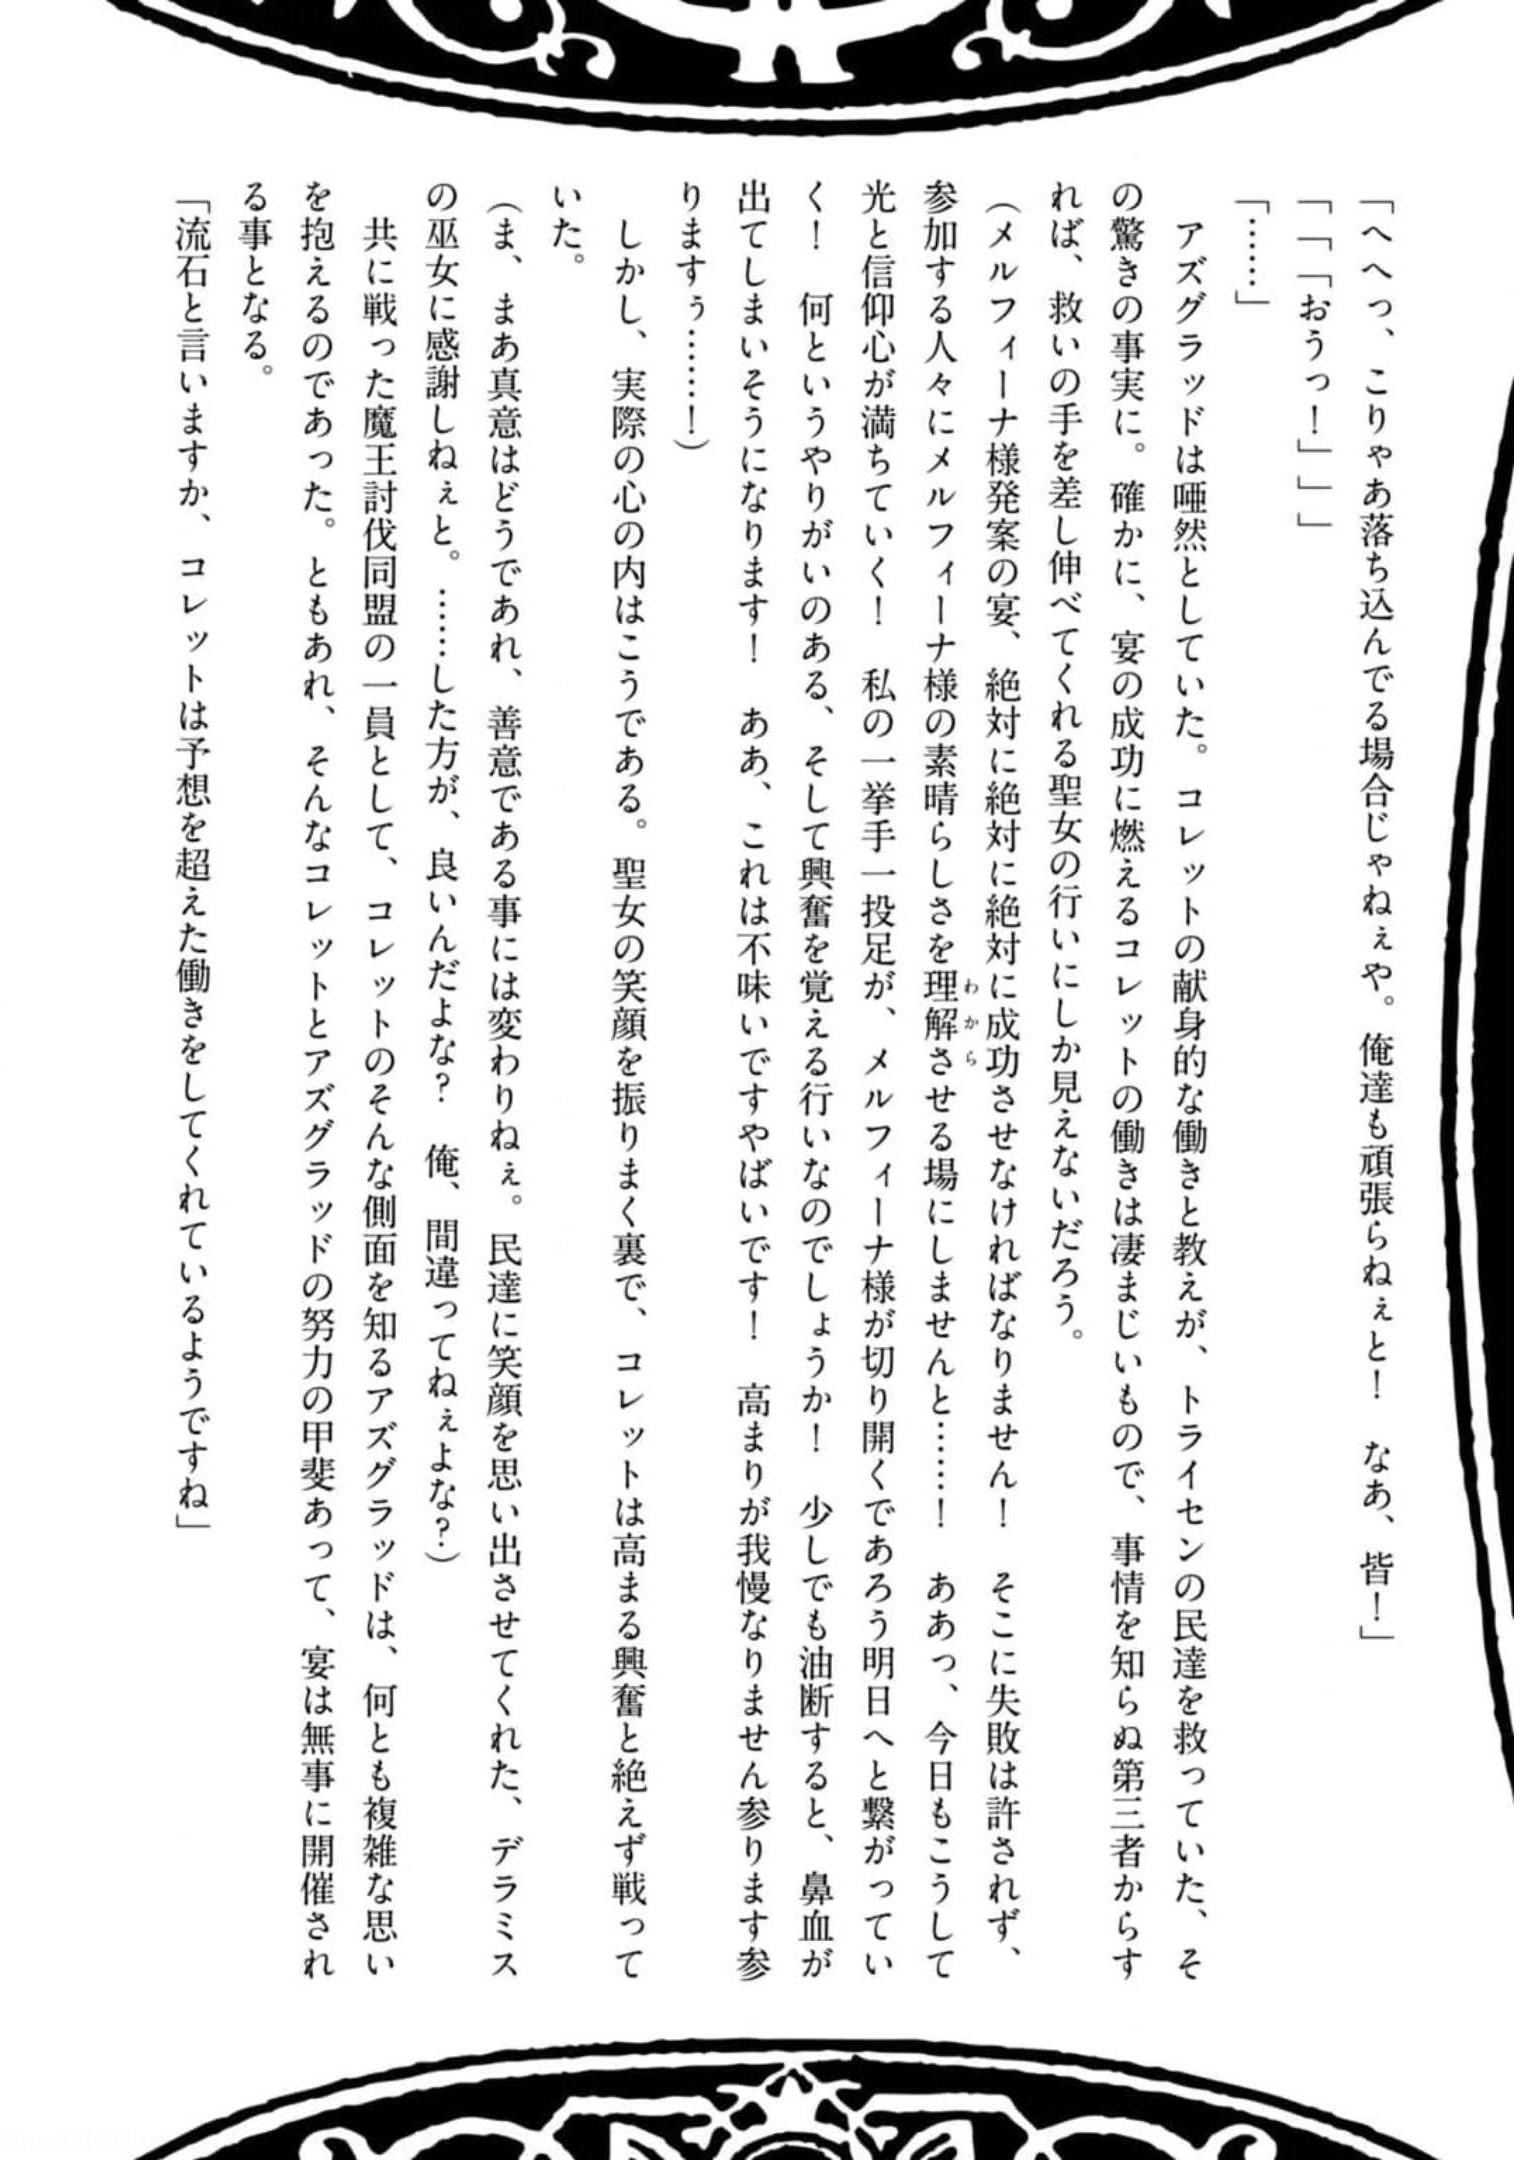 「へへっ、こりゃあ落ち込んでる場合じゃねぇや。俺達も頑張らねぇと！　なあ、皆！」
「「「おうっ！」」」
「……」
　アズグラッドは唖然としていた。コレットの献身的な働きと教えが、トライセンの民達を救っていた、そ
の驚きの事実に。確かに、宴の成功に燃えるコレットの働きは凄まじいもので、事情を知らぬ第三者からす
れば、救いの手を差し伸べてくれる聖女の行いにしか見えないだろう。
（メルフィーナ様発案の宴、絶対に絶対に絶対に成功させなければなりません！　そこに失敗は許されず、
参加する人々にメルフィーナ様の素晴らしさを理解させる場にしませんと……！　ああっ、今日もこうして
わから
光と信仰心が満ちていく！　私の一挙手一投足が、メルフィーナ様が切り開くであろう明日へと繋がってい
く！　何というやりがいのある、そして興奮を覚える行いなのでしょうか！　少しでも油断すると、鼻血が
出てしまいそうになります！　ああ、これは不味いですやばいです！　高まりが我慢なりません参ります参
りますぅ……！）
　しかし、実際の心の内はこうである。聖女の笑顔を振りまく裏で、コレットは高まる興奮と絶えず戦って
いた。
（ま、まあ真意はどうであれ、善意である事には変わりねぇ。民達に笑顔を思い出させてくれた、デラミス
の巫女に感謝しねぇと。……した方が、良いんだよな？　俺、間違ってねぇよな？）
　共に戦った魔王討伐同盟の一員として、コレットのそんな側面を知るアズグラッドは、何とも複雑な思い
を抱えるのであった。ともあれ、そんなコレットとアズグラッドの努力の甲斐あって、宴は無事に開催され
る事となる。
「流石と言いますか、コレットは予想を超えた働きをしてくれているようですね」